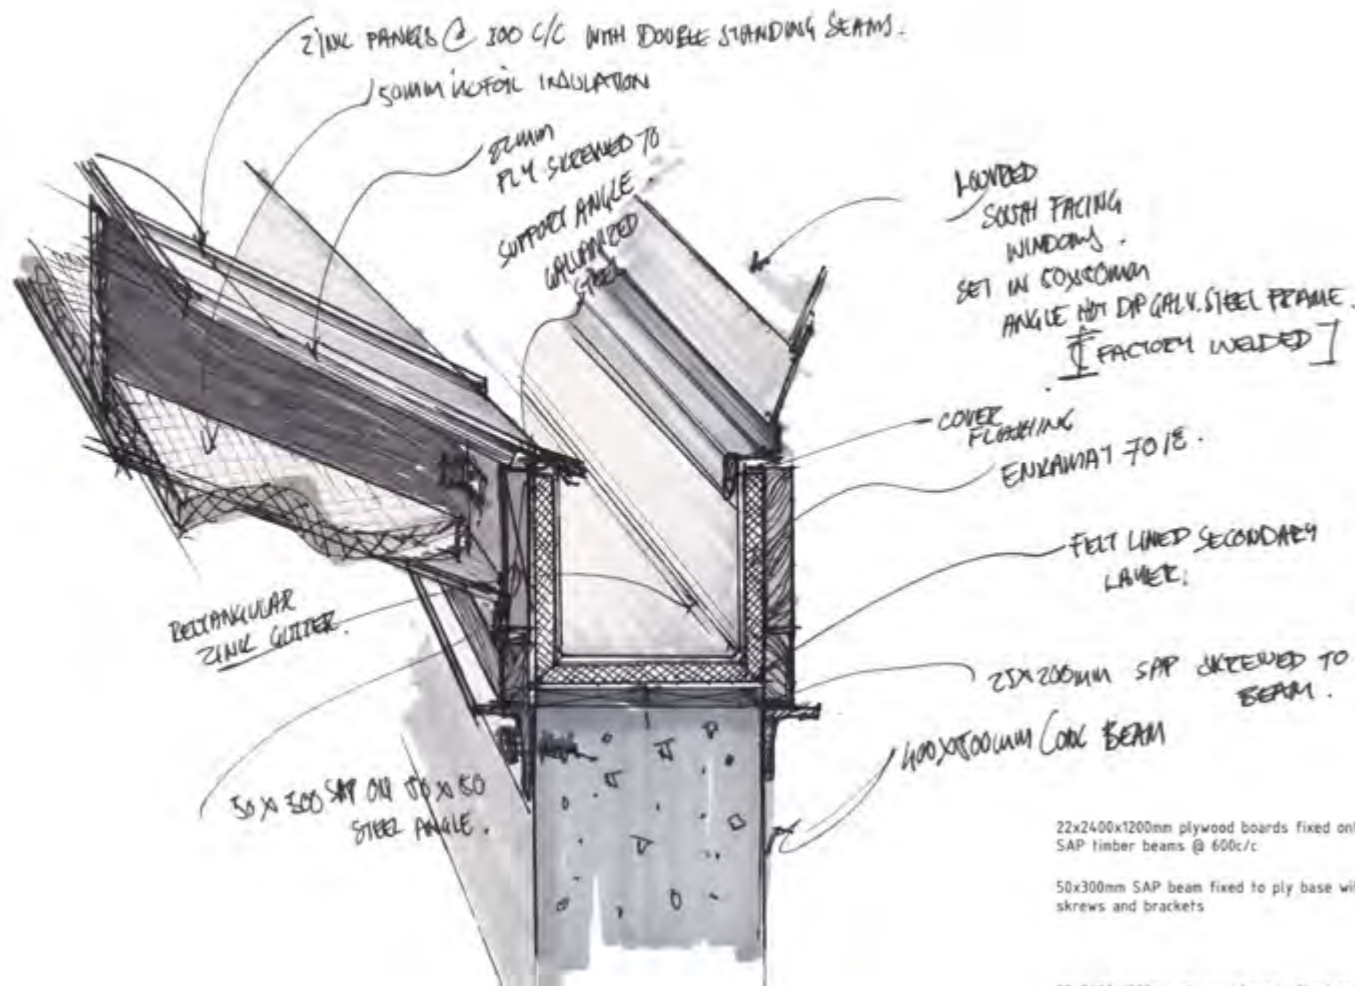 ZINK PANELS @ 300 C/C WITH DOUBLE STANDING SEAMS.
50MM ISOFOIL INSULATION
22MM
PLY SKREWED TO
SUPPORT ANGLE
GALVANIZED
STEEL
LOUVRED
SOUTH FACING
WINDOWS.
SET IN 50X50MM
ANGLE HOT DIP GALV. STEEL FRAME.
[FACTORY WELDED]
COVER
FLASHING
ENKAMAT 7018.
FELT LINED SECONDARY
LAYER.
RECTANGULAR
ZINK GUTTER.
SAP SKREWED TO
BEAM.
CONC BEAM
50 X 300 SAP ON 50 X 50
STEEL ANGLE.
22x2400x1200mm plywood boards fixed
SAP timber beams @ 600c/c
50x300mm SAP beam fixed to ply base
skrews and brackets